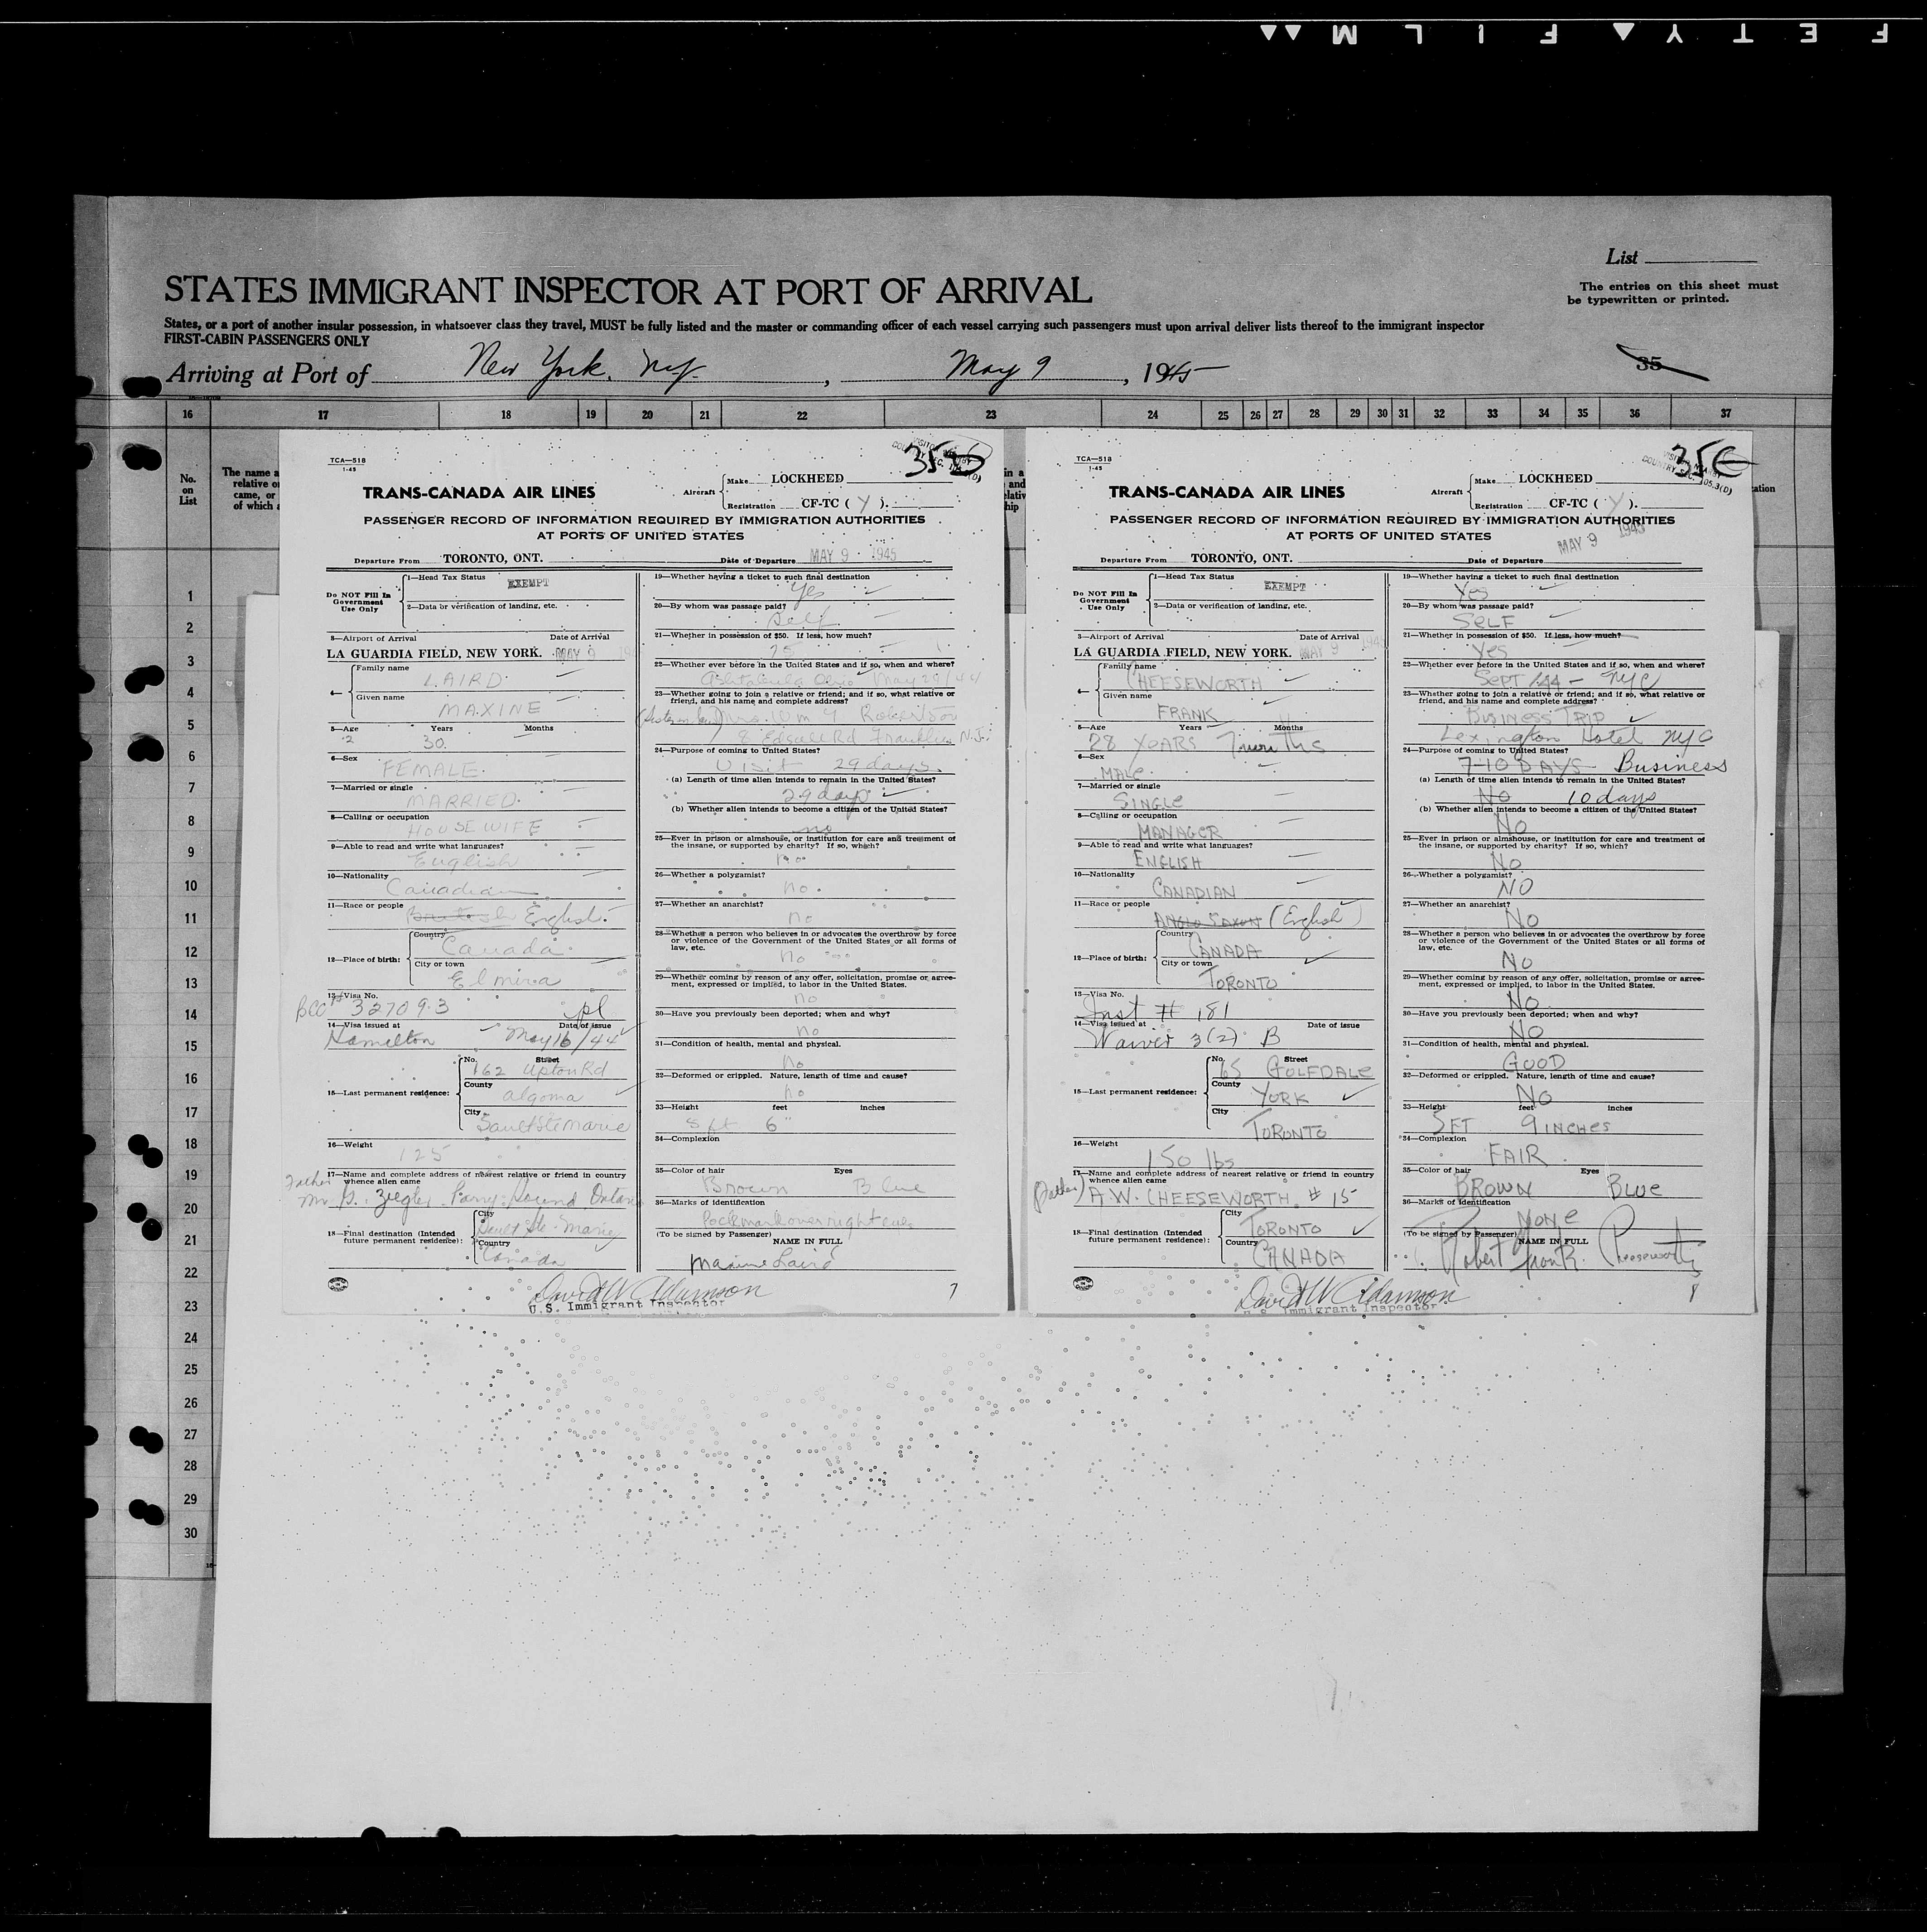 F E T Y ▲ F I L M ▲▲
List
STATES IMMIGRANT INSPECTOR AT PORT OF ARRIVAL
The entries on this sheet must
be typewritten or printed.
States, or a port of another insular possession, in whatsoever class they travel, MUST be fully listed and the master or commanding officer of each vessel carrying such passengers must upon arrival deliver lists thereof to the immigrant inspector
FIRST-CABIN PASSENGERS ONLY
Arriving at Port of New York, N.Y., May 9, 1945
35
16 17 18 19 20 21 22 23 24 25 26 27 28 29 30 31 32 33 34 35 36 37
No.
on
List
The name a
relative o
came, or
of which a
1
2
3
4
5
6
7
8
9
10
11
12
13
14
15
16
17
18
19
20
21
22
23
24
25
26
27
28
29
30
TCA—518
1-45
TRANS-CANADA AIR LINES
Aircraft
Make LOCKHEED
Registration CF-TC ( Y ).
PASSENGER RECORD OF INFORMATION REQUIRED BY IMMIGRATION AUTHORITIES
AT PORTS OF UNITED STATES
Departure From TORONTO, ONT. Date of Departure MAY 9 1945
Do NOT Fill In
Government
Use Only
1—Head Tax Status EXEMPT
2—Data or verification of landing, etc.
3—Airport of Arrival Date of Arrival
LA GUARDIA FIELD, NEW YORK. MAY 9
4— Family name
LAIRD
Given name
MAXINE
5—Age Years Months
30
6—Sex
FEMALE
7—Married or single
MARRIED
8—Calling or occupation
HOUSEWIFE
9—Able to read and write what languages?
English
10—Nationality
Canadian
11—Race or people
English
12—Place of birth:
Country
Canada
City or town
Elmira
13—Visa No.
BCC # 332709.3
14—Visa issued at Date of issue
Hamilton May 16/44
15—Last permanent residence:
No. Street
162 Upton Rd
County
Algoma
City
Sault Ste Marie
16—Weight
125
17—Name and complete address of nearest relative or friend in country
whence alien came
Father
Mr G. Ziegler Parry Sound Ontario
18—Final destination (Intended
future permanent residence):
City
Sault Ste. Marie
Country
Canada
19—Whether having a ticket to such final destination
Yes
20—By whom was passage paid?
Self
21—Whether in possession of $50. If less, how much?
75
22—Whether ever before in the United States and if so, when and where?
Ashtabula Ohio May 20/44
23—Whether going to join a relative or friend; and if so, what relative or
friend, and his name and complete address?
(Sister in law) Mrs. Wm Y Robertson
8 Edsall Rd Franklin N.J.
24—Purpose of coming to United States?
Visit 29 days.
(a) Length of time alien intends to remain in the United States?
29 days
(b) Whether alien intends to become a citizen of the United States?
no
25—Ever in prison or almshouse, or institution for care and treatment of
the insane, or supported by charity? If so, which?
no
26—Whether a polygamist?
no.
27—Whether an anarchist?
no
28—Whether a person who believes in or advocates the overthrow by force
or violence of the Government of the United States or all forms of
law, etc.
no
29—Whether coming by reason of any offer, solicitation, promise or agree-
ment, expressed or implied, to labor in the United States.
no
30—Have you previously been deported; when and why?
no
31—Condition of health, mental and physical.
no
32—Deformed or crippled. Nature, length of time and cause?
no
33—Height feet inches
5 ft 6"
34—Complexion
35—Color of hair Eyes
Brown Blue
36—Marks of identification
Pockmark over right eye
(To be signed by Passenger)
NAME IN FULL
Maxine Laird
David W Adamson
U.S. Immigrant Inspector
7
TCA—518
1-45
TRANS-CANADA AIR LINES
Aircraft
Make LOCKHEED
Registration CF-TC ( Y ).
PASSENGER RECORD OF INFORMATION REQUIRED BY IMMIGRATION AUTHORITIES
AT PORTS OF UNITED STATES
Departure From TORONTO, ONT. Date of Departure MAY 9 1945
Do NOT Fill In
Government
Use Only
1—Head Tax Status EXEMPT
2—Data or verification of landing, etc.
3—Airport of Arrival Date of Arrival
LA GUARDIA FIELD, NEW YORK. MAY 9 1945
4— Family name
CHEESEWORTH
Given name
FRANK
5—Age Years Months
28 YEARS 7 months
6—Sex
MALE
7—Married or single
SINGLE
8—Calling or occupation
MANAGER
9—Able to read and write what languages?
ENGLISH
10—Nationality
CANADIAN
11—Race or people
ANGLO SAXON (English)
12—Place of birth:
Country
CANADA
City or town
TORONTO
13—Visa No.
Inst # 181
14—Visa issued at Date of issue
Waiver 3(2) B
15—Last permanent residence:
No. Street
65 GOLFDALE
County
YORK
City
TORONTO
16—Weight
150 lbs
17—Name and complete address of nearest relative or friend in country
whence alien came
(Father) A.W. CHEESEWORTH # 15
18—Final destination (Intended
future permanent residence):
City
TORONTO
Country
CANADA
19—Whether having a ticket to such final destination
Yes
20—By whom was passage paid?
SELF
21—Whether in possession of $50. If less, how much?
Yes
22—Whether ever before in the United States and if so, when and where?
SEPT /44 — NYC
23—Whether going to join a relative or friend; and if so, what relative or
friend, and his name and complete address?
BUSINESS TRIP
Lexington Hotel NYC
24—Purpose of coming to United States?
7-10 DAYS Business
(a) Length of time alien intends to remain in the United States?
No 10 days
(b) Whether alien intends to become a citizen of the United States?
No
25—Ever in prison or almshouse, or institution for care and treatment of
the insane, or supported by charity? If so, which?
No
26—Whether a polygamist?
NO
27—Whether an anarchist?
No
28—Whether a person who believes in or advocates the overthrow by force
or violence of the Government of the United States or all forms of
law, etc.
No
29—Whether coming by reason of any offer, solicitation, promise or agree-
ment, expressed or implied, to labor in the United States.
No
30—Have you previously been deported; when and why?
No
31—Condition of health, mental and physical.
GOOD
32—Deformed or crippled. Nature, length of time and cause?
No
33—Height feet inches
5FT 9 INCHES
34—Complexion
FAIR
35—Color of hair Eyes
BROWN BLUE
36—Marks of identification
NONE
(To be signed by Passenger)
NAME IN FULL
Robert Frank Cheeseworth
David W Adamson
U.S. Immigrant Inspector
8